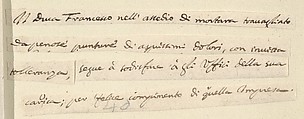 Il Duca Francesco nell' assedio di mortara travagliato
da penose punture di acutissimi dolori, con invitta
tolleranza, segue à sodisfare à gli Uffici della sua
carica; per felice compimento di quella Impresa.